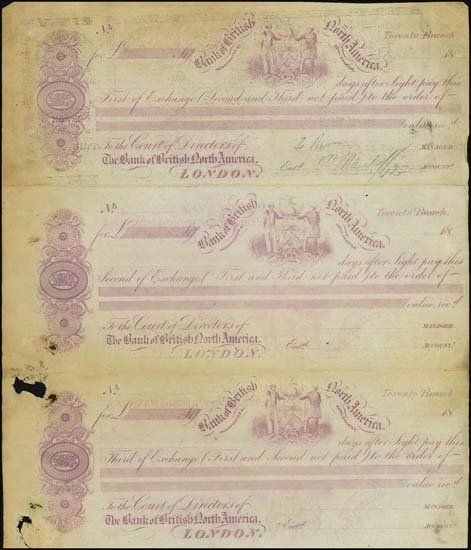 No
for £ Stg. Bank of British North America. Toronto Branch 18
days after Sight pay this
First of Exchange (Second and Third) not paid) to the order of
value rec.d
To the Court of Directors of MANAGER
The Bank of British North America. Ent.d ACCOUNT.t
LONDON.
No
for £ Stg. Bank of British North America. Toronto Branch 18
days after Sight pay this
Second of Exchange (First and Third not paid) to the order of
value rec.d
To the Court of Directors of MANAGER
The Bank of British North America. Ent.d ACCOUNT.t
LONDON.
No
for £ Stg. Bank of British North America. Toronto Branch 18
days after Sight pay this
Third of Exchange (First and Second not paid) to the order of
value rec.d
To the Court of Directors of MANAGER
The Bank of British North America. Ent.d ACCOUNT.t
LONDON.